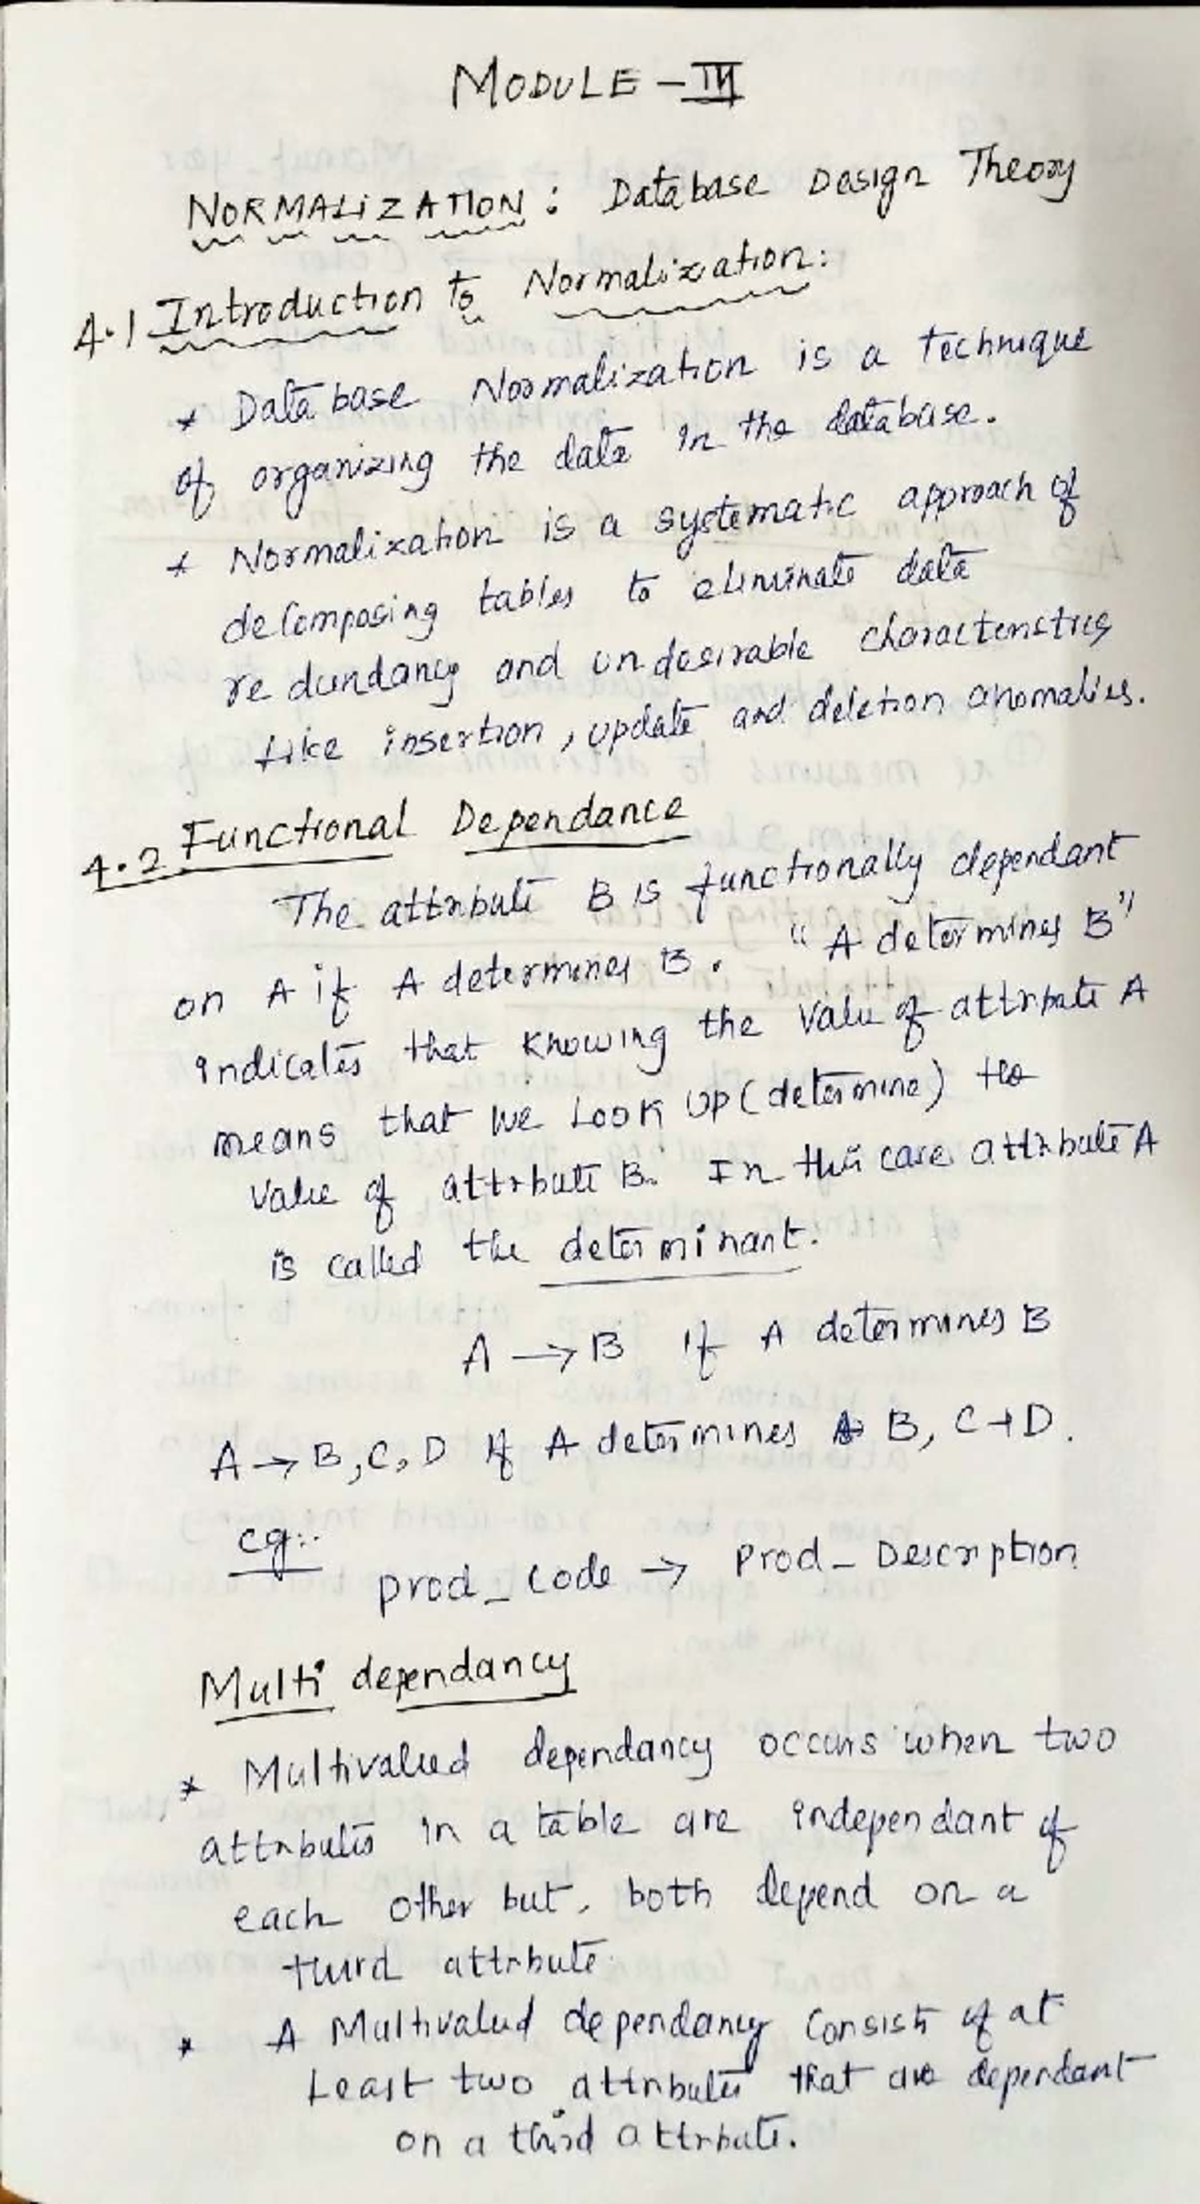 MODULE - IV
NORMALIZATION : Database Design Theory
4.1 Introduction to Normalization:
* Database Normalization is a technique
of organizing the data in the database.
* Normalization is a systematic approach of
decomposing tables to eliminate data
redundancy and undesirable characteristics
like insertion, update and deletion anomalies.
4.2 Functional Dependance
The attribute B is functionally dependant
on A if A determines B. "A determines B"
indicates that knowing the value of attribute A
means that we look up (determine) the
value of attribute B. In this case attribute A
is called the determinant.
A → B if A determines B
A → B, C, D if A determines B, C + D.
eg:-
prod_code → Prod_Description
Multi dependancy
* Multivalued dependancy occurs when two
attributes in a table are independant of
each other but, both depend on a
third attribute.
* A Multivalued dependancy consists of at
least two attributes that are dependant
on a third attribute.